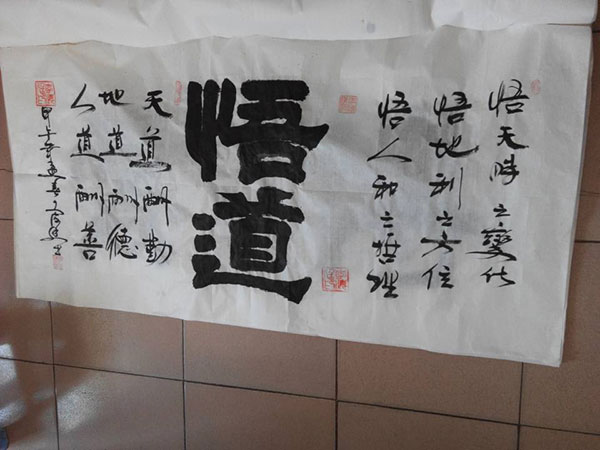 悟天时之變化
悟地利之方位
悟人和之哲理
悟道
天道酬勤
地道酬德
人道酬善